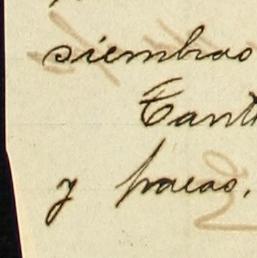 siembras
Tant
y pacas,